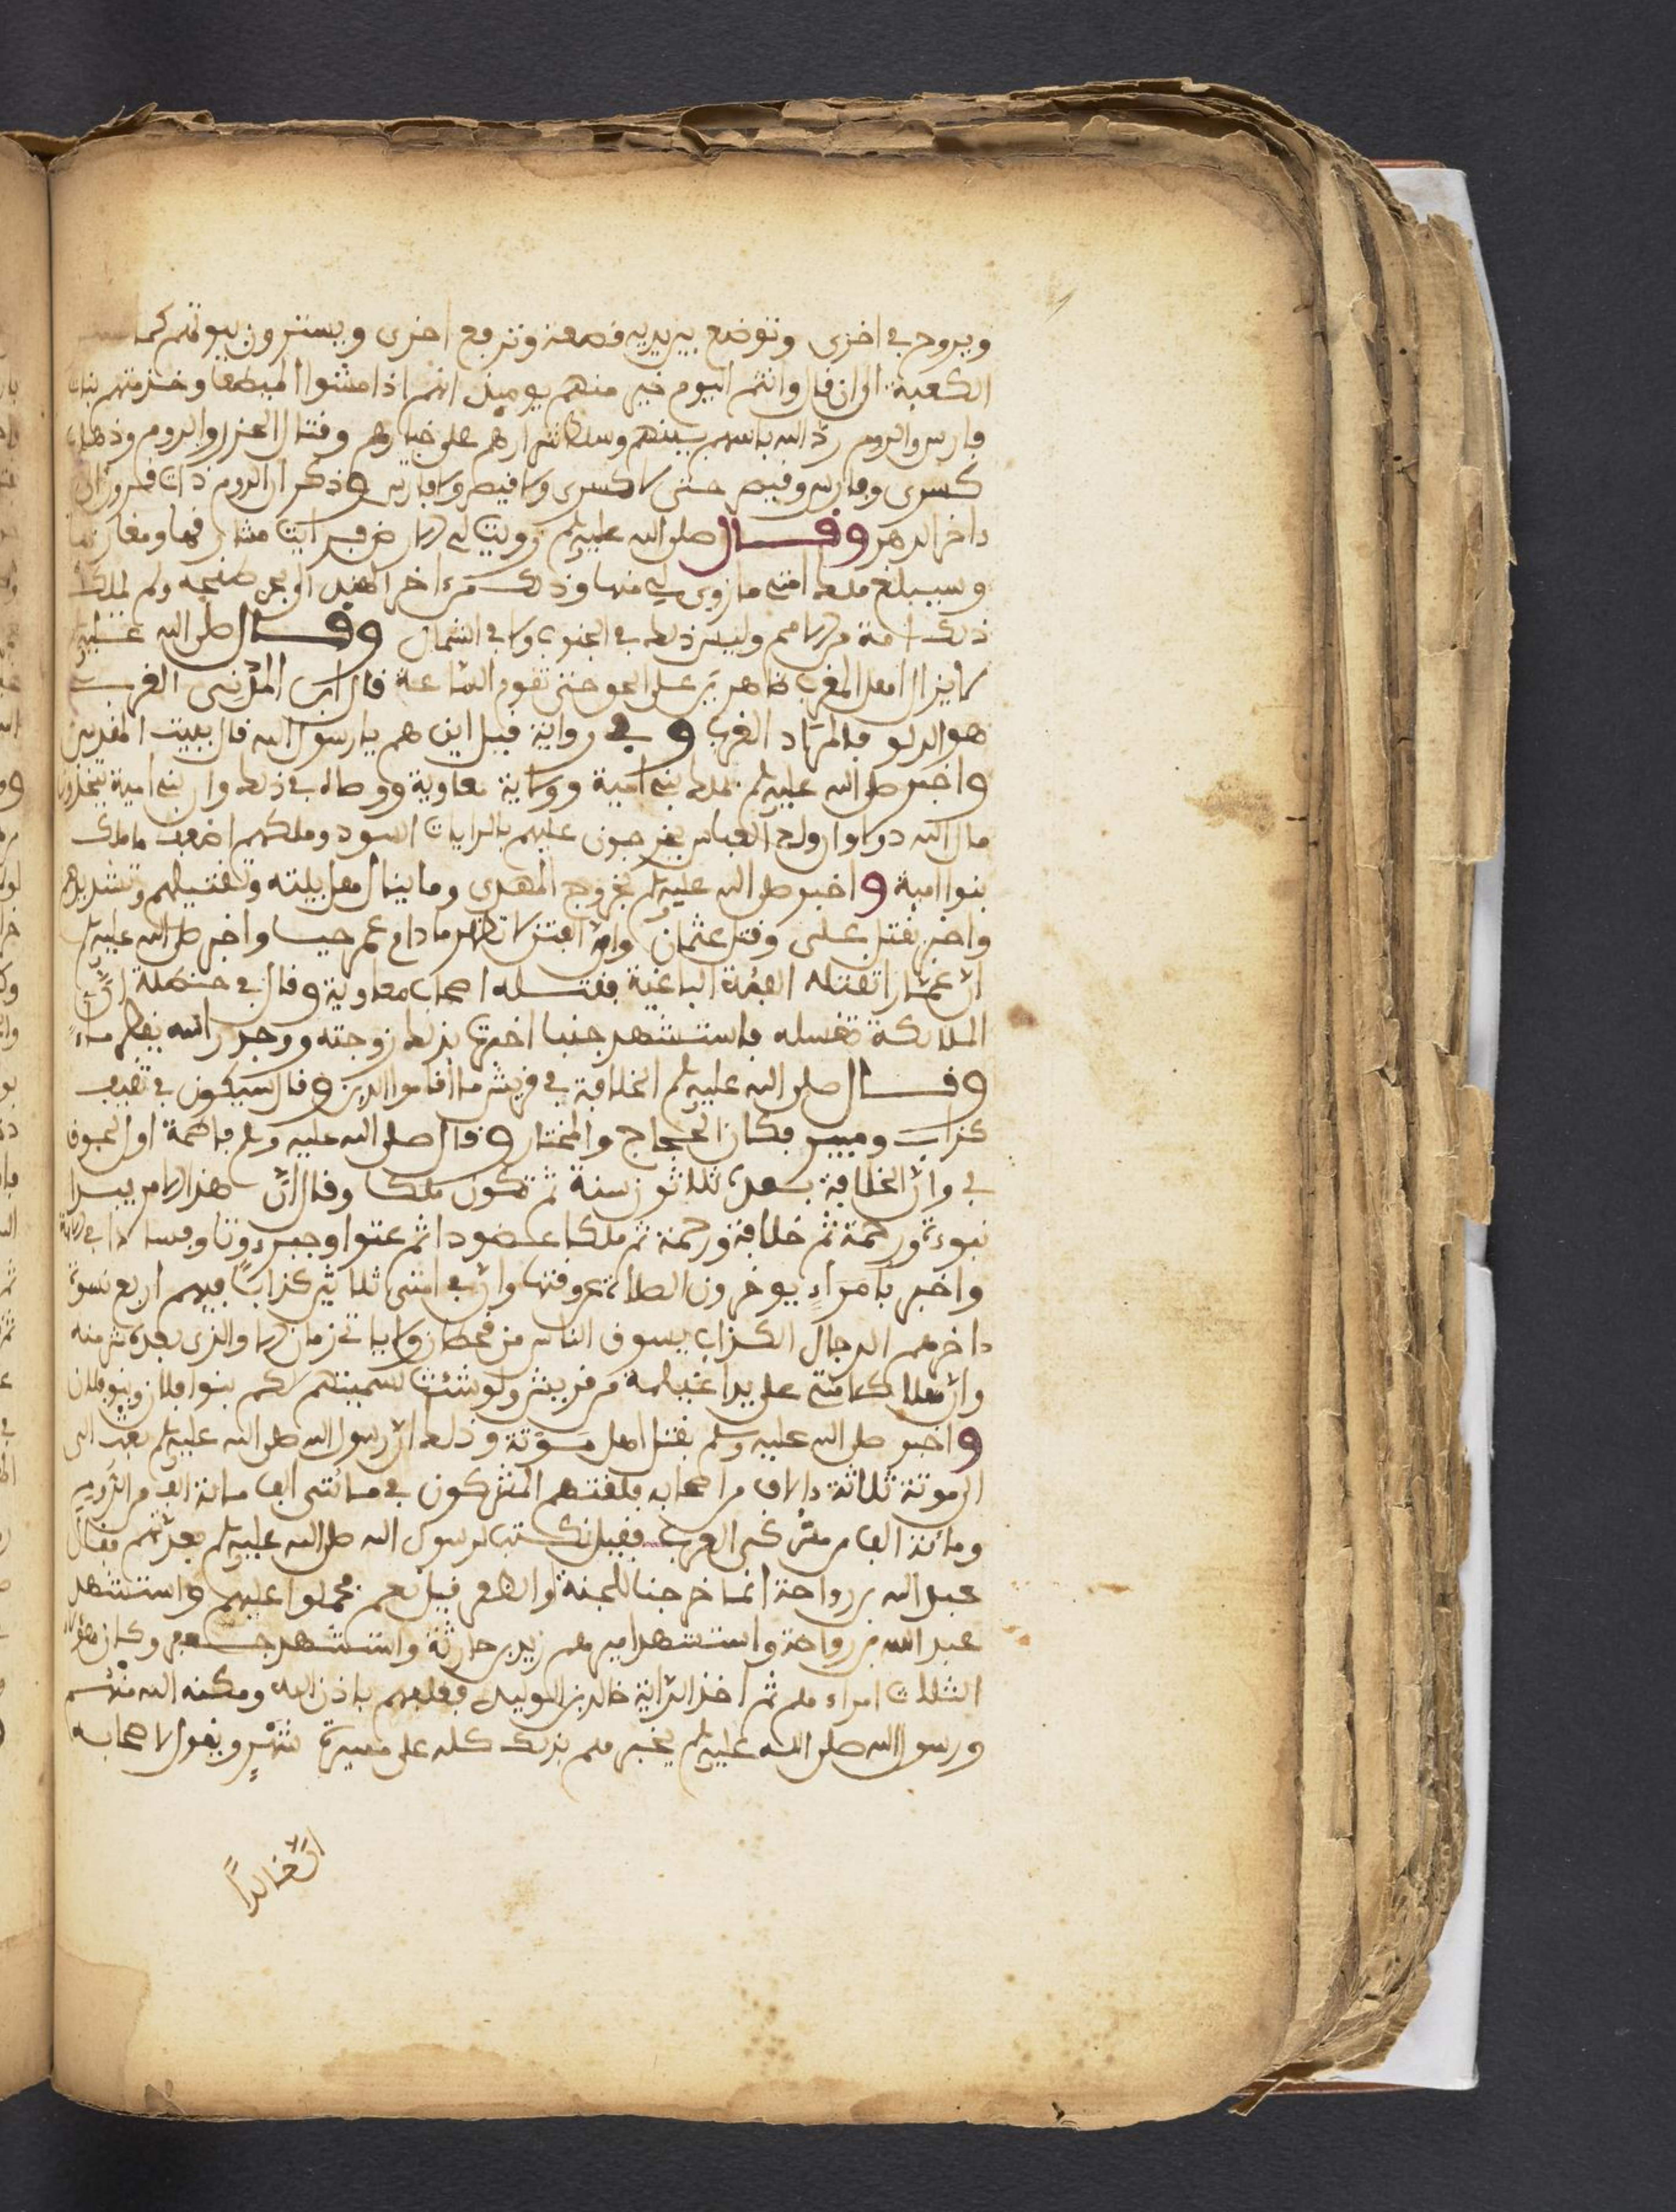 ويروح في اخرى وتوضع بين يديه قصعة وترفع اخرى ويسترون بيوتهم كما
الكعبة الى ان قال وانتم اليوم خير منهم يوميذ انهم اذا مشوا المطيطا وخدمتهم بنات
فارس والروم رد الله باسهم بينهم وسلط شرارهم على خيارهم وقتال الخزر والروم وذهاب
كسرى وفارس وقيصر حتى لا كسرى ولا قيصر ولا فارس وذكر ان الروم ذات قرون الى
داخر الدهر وقال صلى الله عليه وسلم زويت لي الارض فرايت مشارقها ومغاربها
وسيبلغ ملك امتي ما زوي لي منها وذلك من اخر الهند الى بحر طنجه ولم تملك
ذلك امة من الامم وليس ذلك في الجنوب ولا في الشمال وقال صلى الله عليه
لا يزال اهل المغرب ظاهرين على الحق حتى تقوم الساعة قال ابن المديني الغرب
هو الدلو فالمراد الغرب وفي رواية قيل اين هم يا رسول الله قال ببيت المقدس
واخبر صلى الله عليه وسلم بملك بني امية وولاية معاوية ووصاله في ذلك وان بني امية يتخذون
مال الله دولا وان ولد العباس يخرجون عليهم بالرايات السود وملكهم اضعف ما ملك
بنوا امية واخبر صلى الله عليه وسلم بخروج المهدي وما ينال اهل بيته وتقتيلهم وتشريدهم
واخبر بقتل علي وقتل عثمان وان الفتن لا تظهر ما دام عمر حيا واخبر صلى الله عليه وسلم
ان عمارا تقتله الفئة الباغية فقتله اصحاب معاوية وقال في حنظلة ان
الملائكة تغسله فاستشهد جنبا اخبرتها بذلك زوجته ووجد راسه يقطر ماء
وقال صلى الله عليه وسلم الخلافة في قريش ما اقاموا الدين وقال سيكون في ثقيف
كذاب ومبير فكان الحجاج والمختار وقال صلى الله عليه وسلم فاطمة اول لحوقا
بي وان الخلافة بعدي ثلاثون سنة ثم تكون ملكا وقال ان هذا الامر يبدا
نبوءة ورحمة ثم خلافة ورحمة ثم ملكا عضودا ثم عتوا وجبروتا وفسادا في الامة
واخبر بامراء يوخرون الصلاة عن وقتها وان في امتي ثلاثين كذابا فيهم اربع نسوة
داخرهم الدجال الكذاب يسوق الناس من قحطان ولا ياتي زمان الا والذي بعده شر منه
وان هلاك امتي على يد اغيلمة من قريش ولو شئت لسميتهم لكم بنوا فلان وبنو فلان
واخبر صلى الله عليه وسلم بقتل اهل موتة وذلك ان رسول الله صلى الله عليه وسلم بعث الى
الموتة ثلاثة دالاف من اصحابه فلقتهم المشركون في مائتي الف مائة الف من الروم
ومائة الف من مشركي العرب فقيل نكتب لرسول الله صلى الله عليه وسلم بعدتهم فقال
عبد الله بن رواحة انما خرجنا للجنة او الظفر قيل نعم فحملوا عليهم واستشهد
عبد الله بن رواحة واستشهد اميرهم زيد بن حارثة واستشهد جعفر وكان هؤلاء
الثلاث امراءهم ثم اخذ الراية خالد بن الوليد فغلبهم باذن الله ومكنه الله منهم
ورسول الله صلى الله عليه وسلم يخبرهم بذلك كله على مسيرة شهر ويقول لاصحابه
ان خالدا